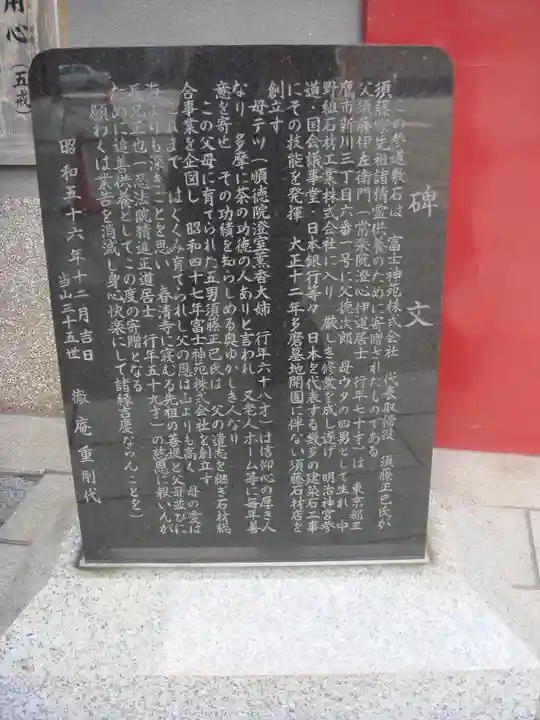 碑文
この参道敷石は 富士神苑株式会社 代表取締役 須藤正己氏が
須藤家先祖諸精霊供養のために寄贈されたものである
父須藤伊左衛門(常楽院澄心伊道居士 行年七十才)は 東京都三
鷹市新川三丁目六番一号に父徳次郎 母ウタの四男として生れ 中
野組石材工業株式会社に入り 厳しき修業を成し遂げ 明治神宮参
道・国会議事堂・日本銀行等々 日本を代表する幾多の建築石工事
にその技能を発揮 大正十二年多磨墓地開園に伴ない須藤石材店を
創立す
母テツ(順徳院澄室薫香大姉 行年六十八才)は信仰心の厚き人
なり 多摩に茶の功徳の人ありと言われ 又老人ホーム等に毎年善
意を寄せ その功績を知らしめる奥ゆかしき人なり
この父母に育てられた五男須藤正己氏は 父の遺志を継ぎ石材総
合事業を企図し 昭和四十七年富士神苑株式会社を創立す
これまで はぐくみ育てられし父の恩は山よりも高く 母の愛は
海よりも深きことを思い 春清寺に寝むる先祖の菩提と父母並びに
兄正也(忍法院精進正道居士 行年五十九才)の慈恩に報いんが
ために追善供養として この度の寄贈となる
願わくは業苦を消滅し身心快楽にして諸縁吉慶ならんことを
昭和五十六年十二月吉日
当山三十五世 徹庵 重剛代
用心(五戒)